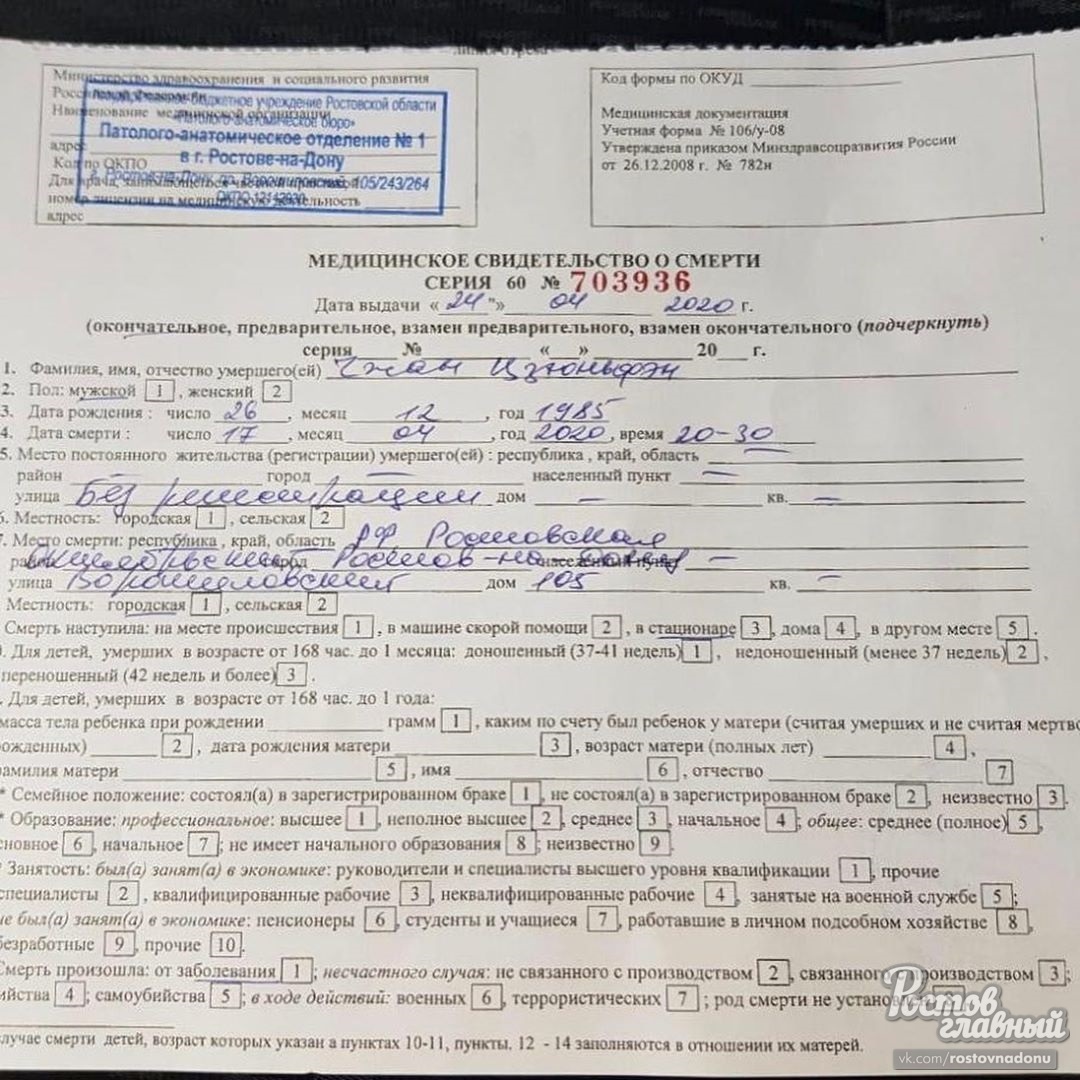 Линия отреза
Министерство здравоохранения и социального развития
Российской Федерации
Наименование медицинской организации
адрес
Код по ОКПО
Для врача, занимающегося частной практикой
номер лицензии на медицинскую деятельность
адрес
бюджетное учреждение Ростовской области
«Патолого-анатомическое бюро»
Патолого-анатомическое отделение № 1
в г. Ростове-на-Дону
г. Ростов-на-Дону, пр. Ворошиловский, 105/243/264
ОКПО
Код формы по ОКУД
Медицинская документация
Учетная форма № 106/у-08
Утверждена приказом Минздравсоцразвития России
от 26.12.2008 г. № 782н
МЕДИЦИНСКОЕ СВИДЕТЕЛЬСТВО О СМЕРТИ
СЕРИЯ 60 № 703936
Дата выдачи « 24 "» 04 2020 г.
(окончательное, предварительное, взамен предварительного, взамен окончательного (подчеркнуть)
серия № « » 20 г.
1. Фамилия, имя, отчество умершего(ей) Чжан Цзюньфэн
2. Пол: мужской 1 , женский 2
3. Дата рождения : число 26 , месяц 12 , год 1985
4. Дата смерти : число 17 , месяц 04 , год 2020, время 20-30
5. Место постоянного жительства (регистрации) умершего(ей) : республика , край, область —
район город — населенный пункт —
улица Без регистрации дом – кв. –
6. Местность: городская 1 , сельская 2
7. Место смерти: республика , край, область РФ Ростовская
район Октябрьский город Ростов-на-Дону населенный пункт –
улица Ворошиловский дом 105 кв. –
Местность: городская 1 , сельская 2
Смерть наступила: на месте происшествия 1 , в машине скорой помощи 2 , в стационаре 3 , дома 4 , в другом месте 5 .
. Для детей, умерших в возрасте от 168 час. до 1 месяца: доношенный (37-41 недель) 1 , недоношенный (менее 37 недель) 2 ,
переношенный (42 недель и более) 3 .
. Для детей, умерших в возрасте от 168 час. до 1 года:
масса тела ребенка при рождении грамм 1 , каким по счету был ребенок у матери (считая умерших и не считая мертво
рожденных) 2 , дата рождения матери 3 , возраст матери (полных лет) 4 ,
фамилия матери 5 , имя 6 , отчество 7
* Семейное положение: состоял(а) в зарегистрированном браке 1 , не состоял(а) в зарегистрированном браке 2 , неизвестно 3 .
* Образование: профессиональное: высшее 1 , неполное высшее 2 , среднее 3 , начальное 4 ; общее: среднее (полное) 5 ,
основное 6 , начальное 7 ; не имеет начального образования 8 ; неизвестно 9 .
* Занятость: был(а) занят(а) в экономике: руководители и специалисты высшего уровня квалификации 1 , прочие
специалисты 2 , квалифицированные рабочие 3 , неквалифицированные рабочие 4 , занятые на военной службе 5 ;
не был(а) занят(а) в экономике: пенсионеры 6 , студенты и учащиеся 7 , работавшие в личном подсобном хозяйстве 8 ,
безработные 9 , прочие 10 .
Смерть произошла: от заболевания 1 ; несчастного случая: не связанного с производством 2 , связанного с производством 3 ;
убийства 4 ; самоубийства 5 ; в ходе действий: военных 6 , террористических 7 ; род смерти не установлен
случае смерти детей, возраст которых указан а пунктах 10-11, пункты, 12 - 14 заполняются в отношении их матерей.
Ростов
главный
vk.com/rostovnadonu